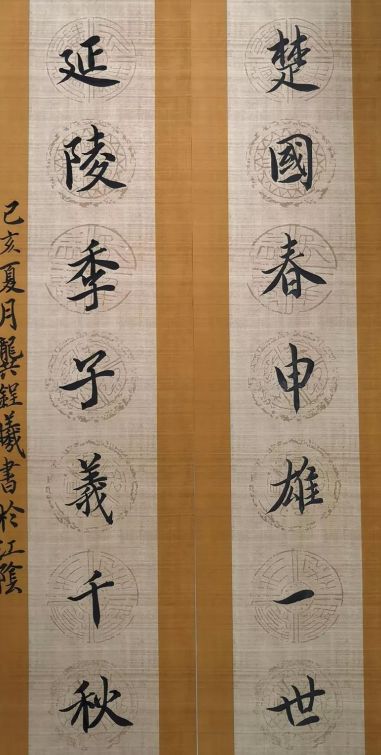 楚國春申雄一世
延陵季子義千秋
己亥夏月龔鋥曦書於江陰